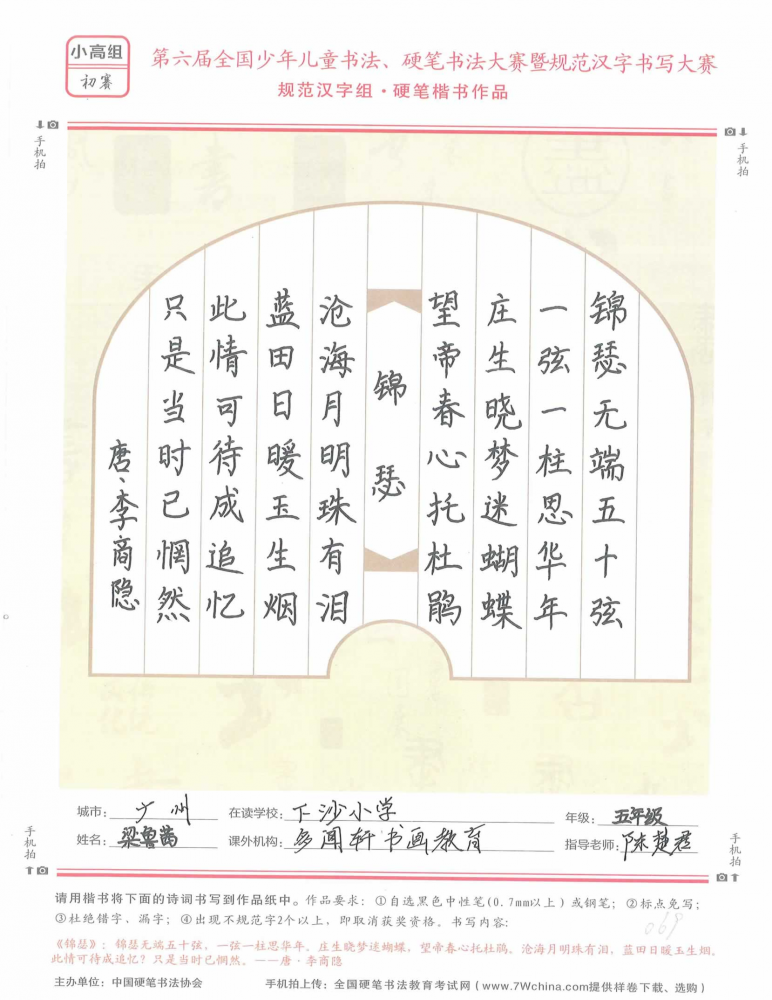 小高组
初赛
第六届全国少年儿童书法、硬笔书法大赛暨规范汉字书写大赛
规范汉字组·硬笔楷书作品
手机拍
手机拍
锦瑟无端五十弦
一弦一柱思华年
庄生晓梦迷蝴蝶
望帝春心托杜鹃
锦瑟
沧海月明珠有泪
蓝田日暖玉生烟
此情可待成追忆
只是当时已惘然
唐、李商隐
城市：广州 在读学校：下沙小学 年级：五年级
姓名：梁鲁茜 课外机构：多闻轩书画教育 指导老师：陈楚君
手机拍
手机拍
请用楷书将下面的诗词书写到作品纸中。作品要求：①自选黑色中性笔(0.7mm以上）或钢笔；②标点免写；
③杜绝错字、漏字；④出现不规范字2个以上，即取消获奖资格。书写内容：
069
《锦瑟》：锦瑟无端五十弦，一弦一柱思华年。庄生晓梦迷蝴蝶，望帝春心托杜鹃。沧海月明珠有泪，蓝田日暖玉生烟。
此情可待成追忆？只是当时已惘然。——唐·李商隐
主办单位：中国硬笔书法协会 手机拍上传：全国硬笔书法教育考试网（www.7Wchina.com提供样卷下载、选购）